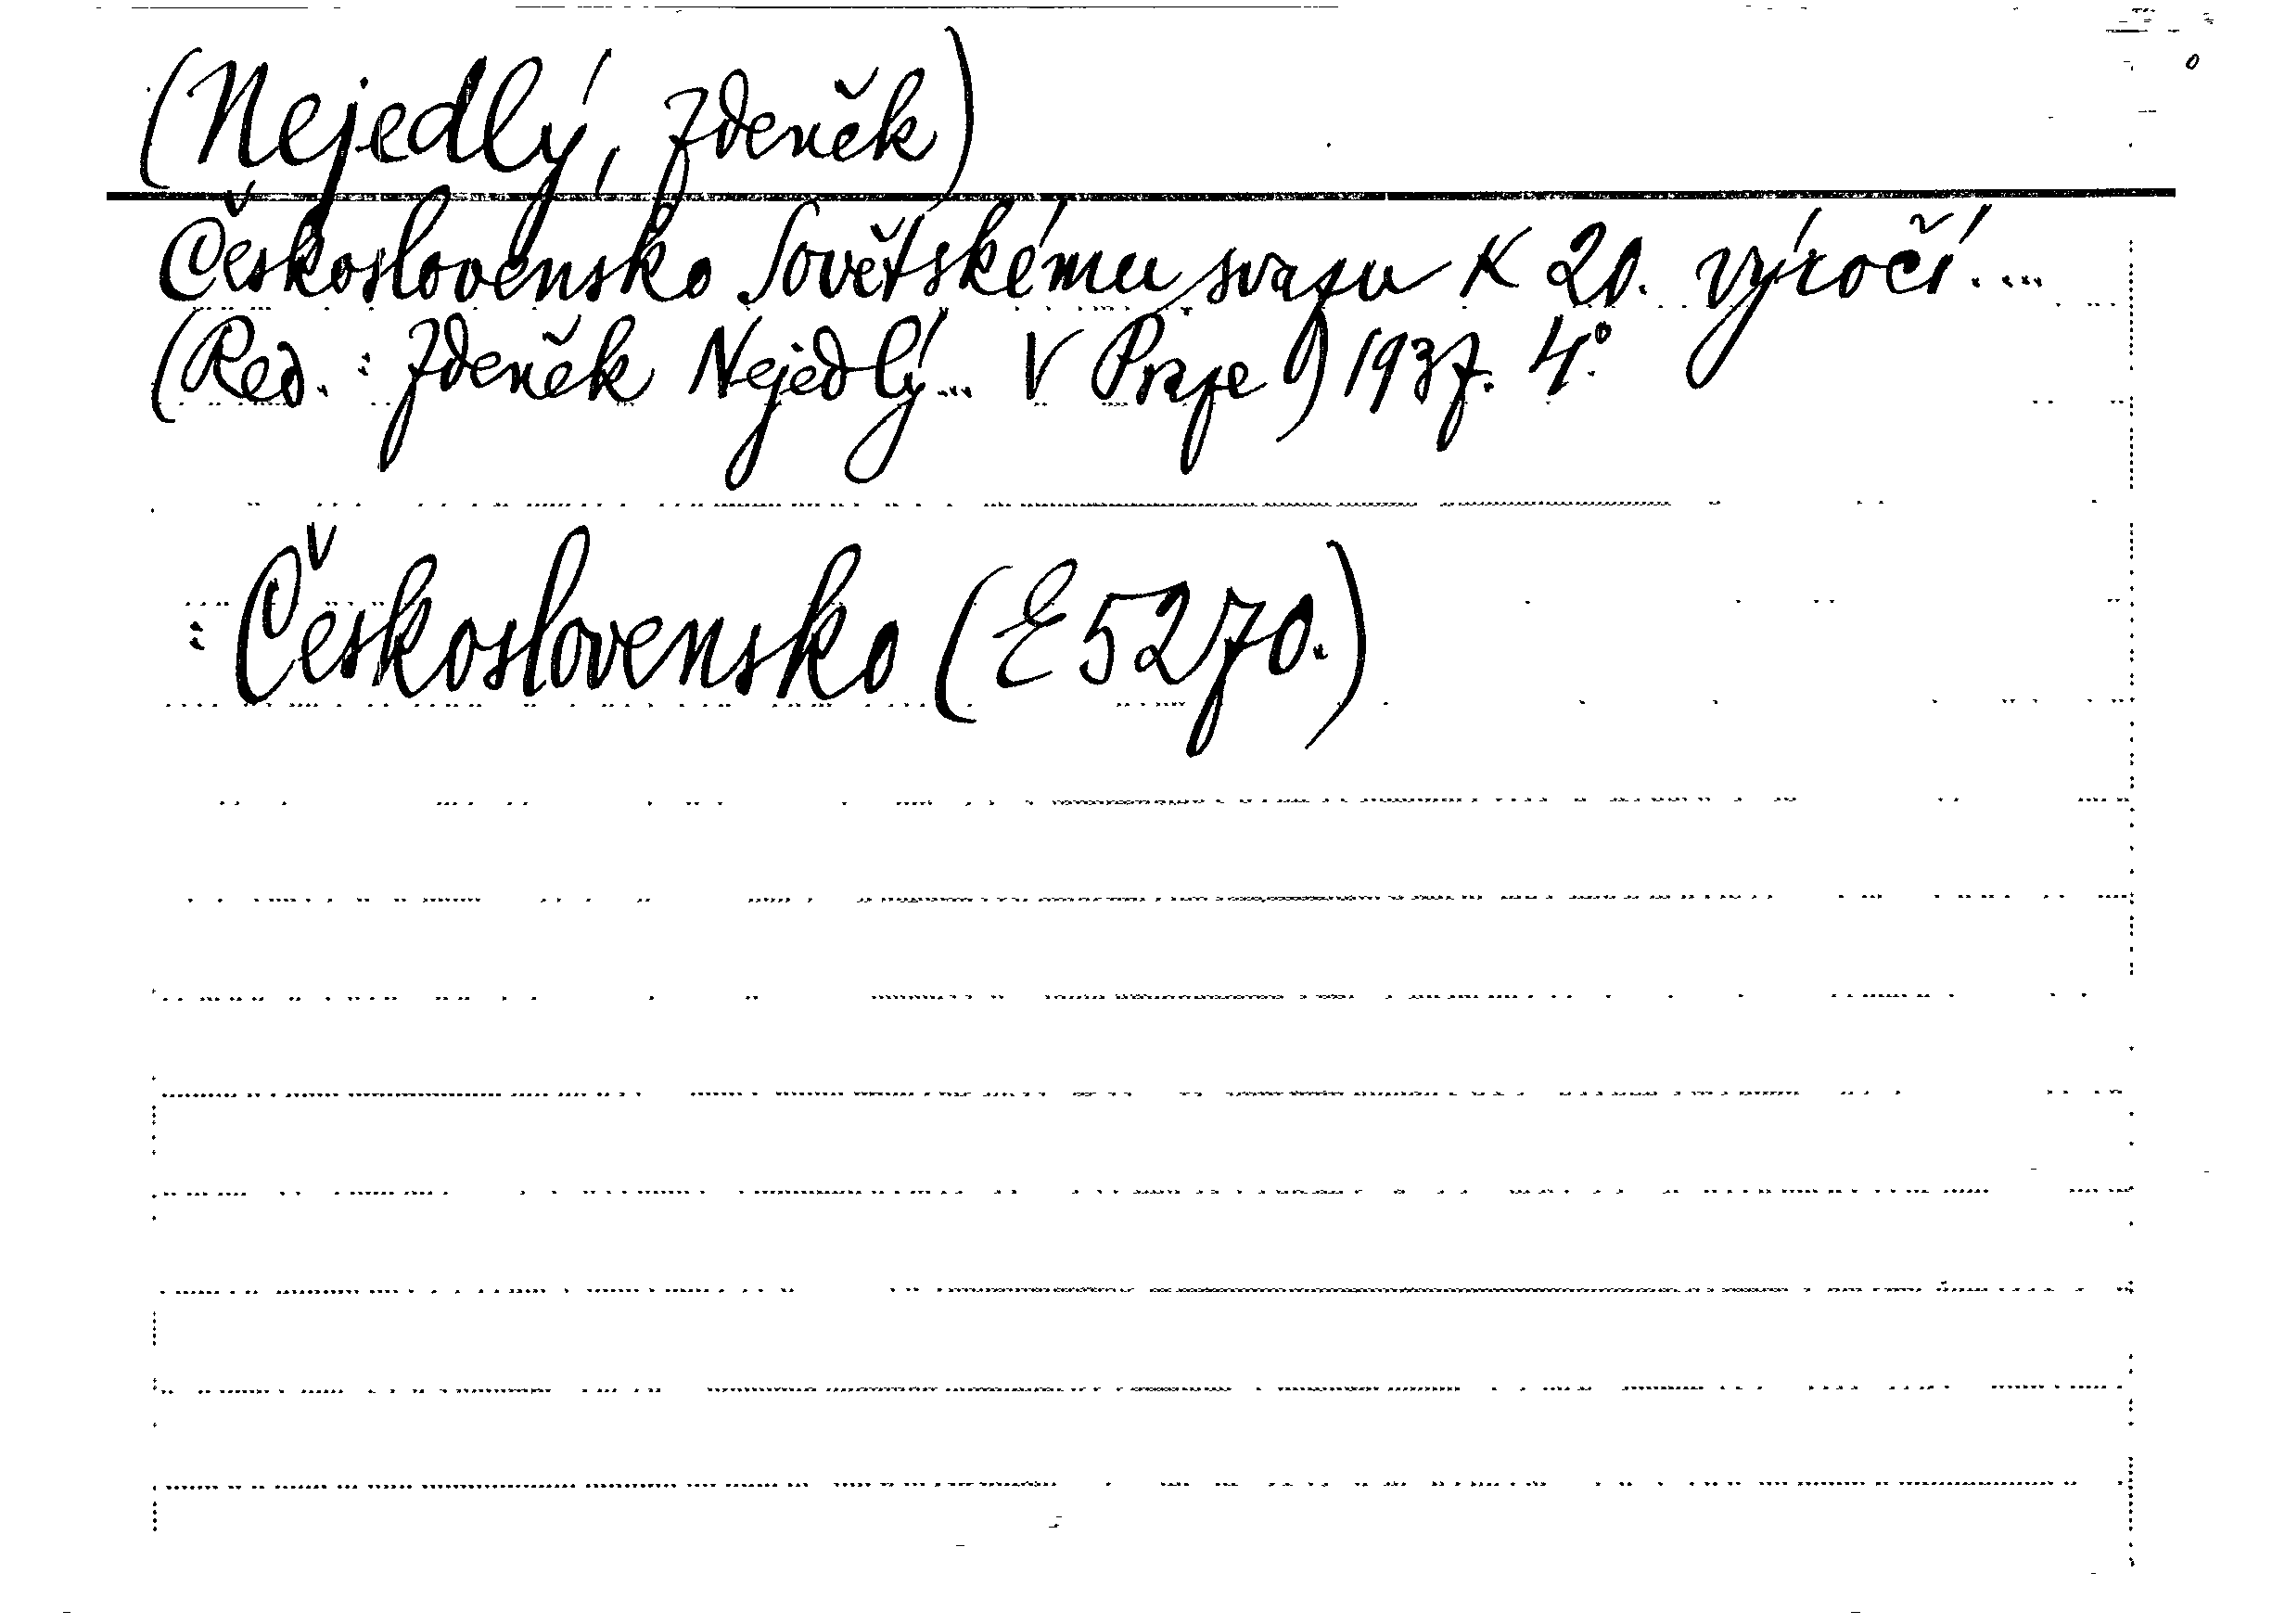 (Nejedlý, Zdeněk)
Československo Sovětskému svazu K 20. výročí....
(Red.: Zdeněk Nejedlý... V Praze) 1937. 4°.
: Československo (E 5270.)